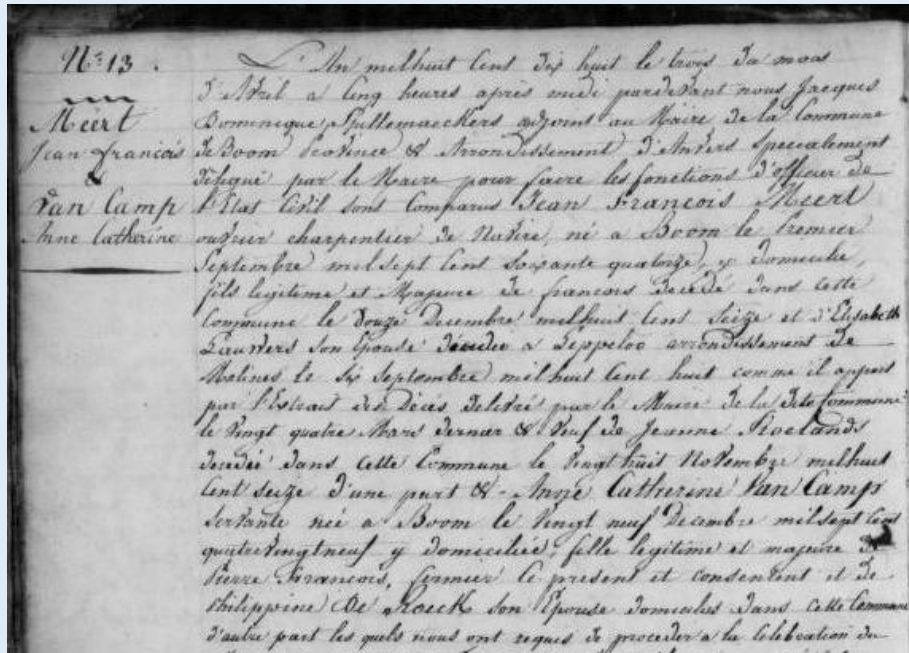 N.º 13.
Meert
Jean francois
&
Van Camp
Anne Catherine
L'An milhuit Cent dix huit le trois du mois
d'Avril a Cinq heures après midi pardevant nous Jacques
Dominique Spillemaeckers adjoint au Maire de la Commune
de Boom Province & Arrondissement d'Anvers Specialement
délégué par le Maire pour faire les fonctions d'officier de
l'Etat Civil sont Comparus Jean François Meert
ouvrier charpentier de Navire, né a Boom le Premier
Septembre milsept Cent soixante quatorze, y domicilié,
fils legitime et Majeure de francois decedé dans cette
Commune le Douze Decembre milhuit Cent Seize et d'Elisabeth
Lauwers son Epouse décedée a Leppeloo arrondissement de
Malines le six Septembre milhuit Cent huit comme il appert
par l'Extrait des Décés delivré par le Maire de la dite Commune
le Vingt quatre Mars dernier & Veuf de Jeanne Roelands
decedée dans cette Commune le Vingt huit Novembre milhuit
Cent Seize d'une part & Anne Catherine Van Camp
Servante née a Boom le Vingt neuf Decembre milsept Cent
quatreVingtneuf y domiciliée, fille legitime et majeure de
Pierre Francois, fermier Ci present et consentent et de
Philippine De Roeck son Epouse domiciliés dans cette Commune
d'autre part les quels nous ont requis de proceder a la Celebration du